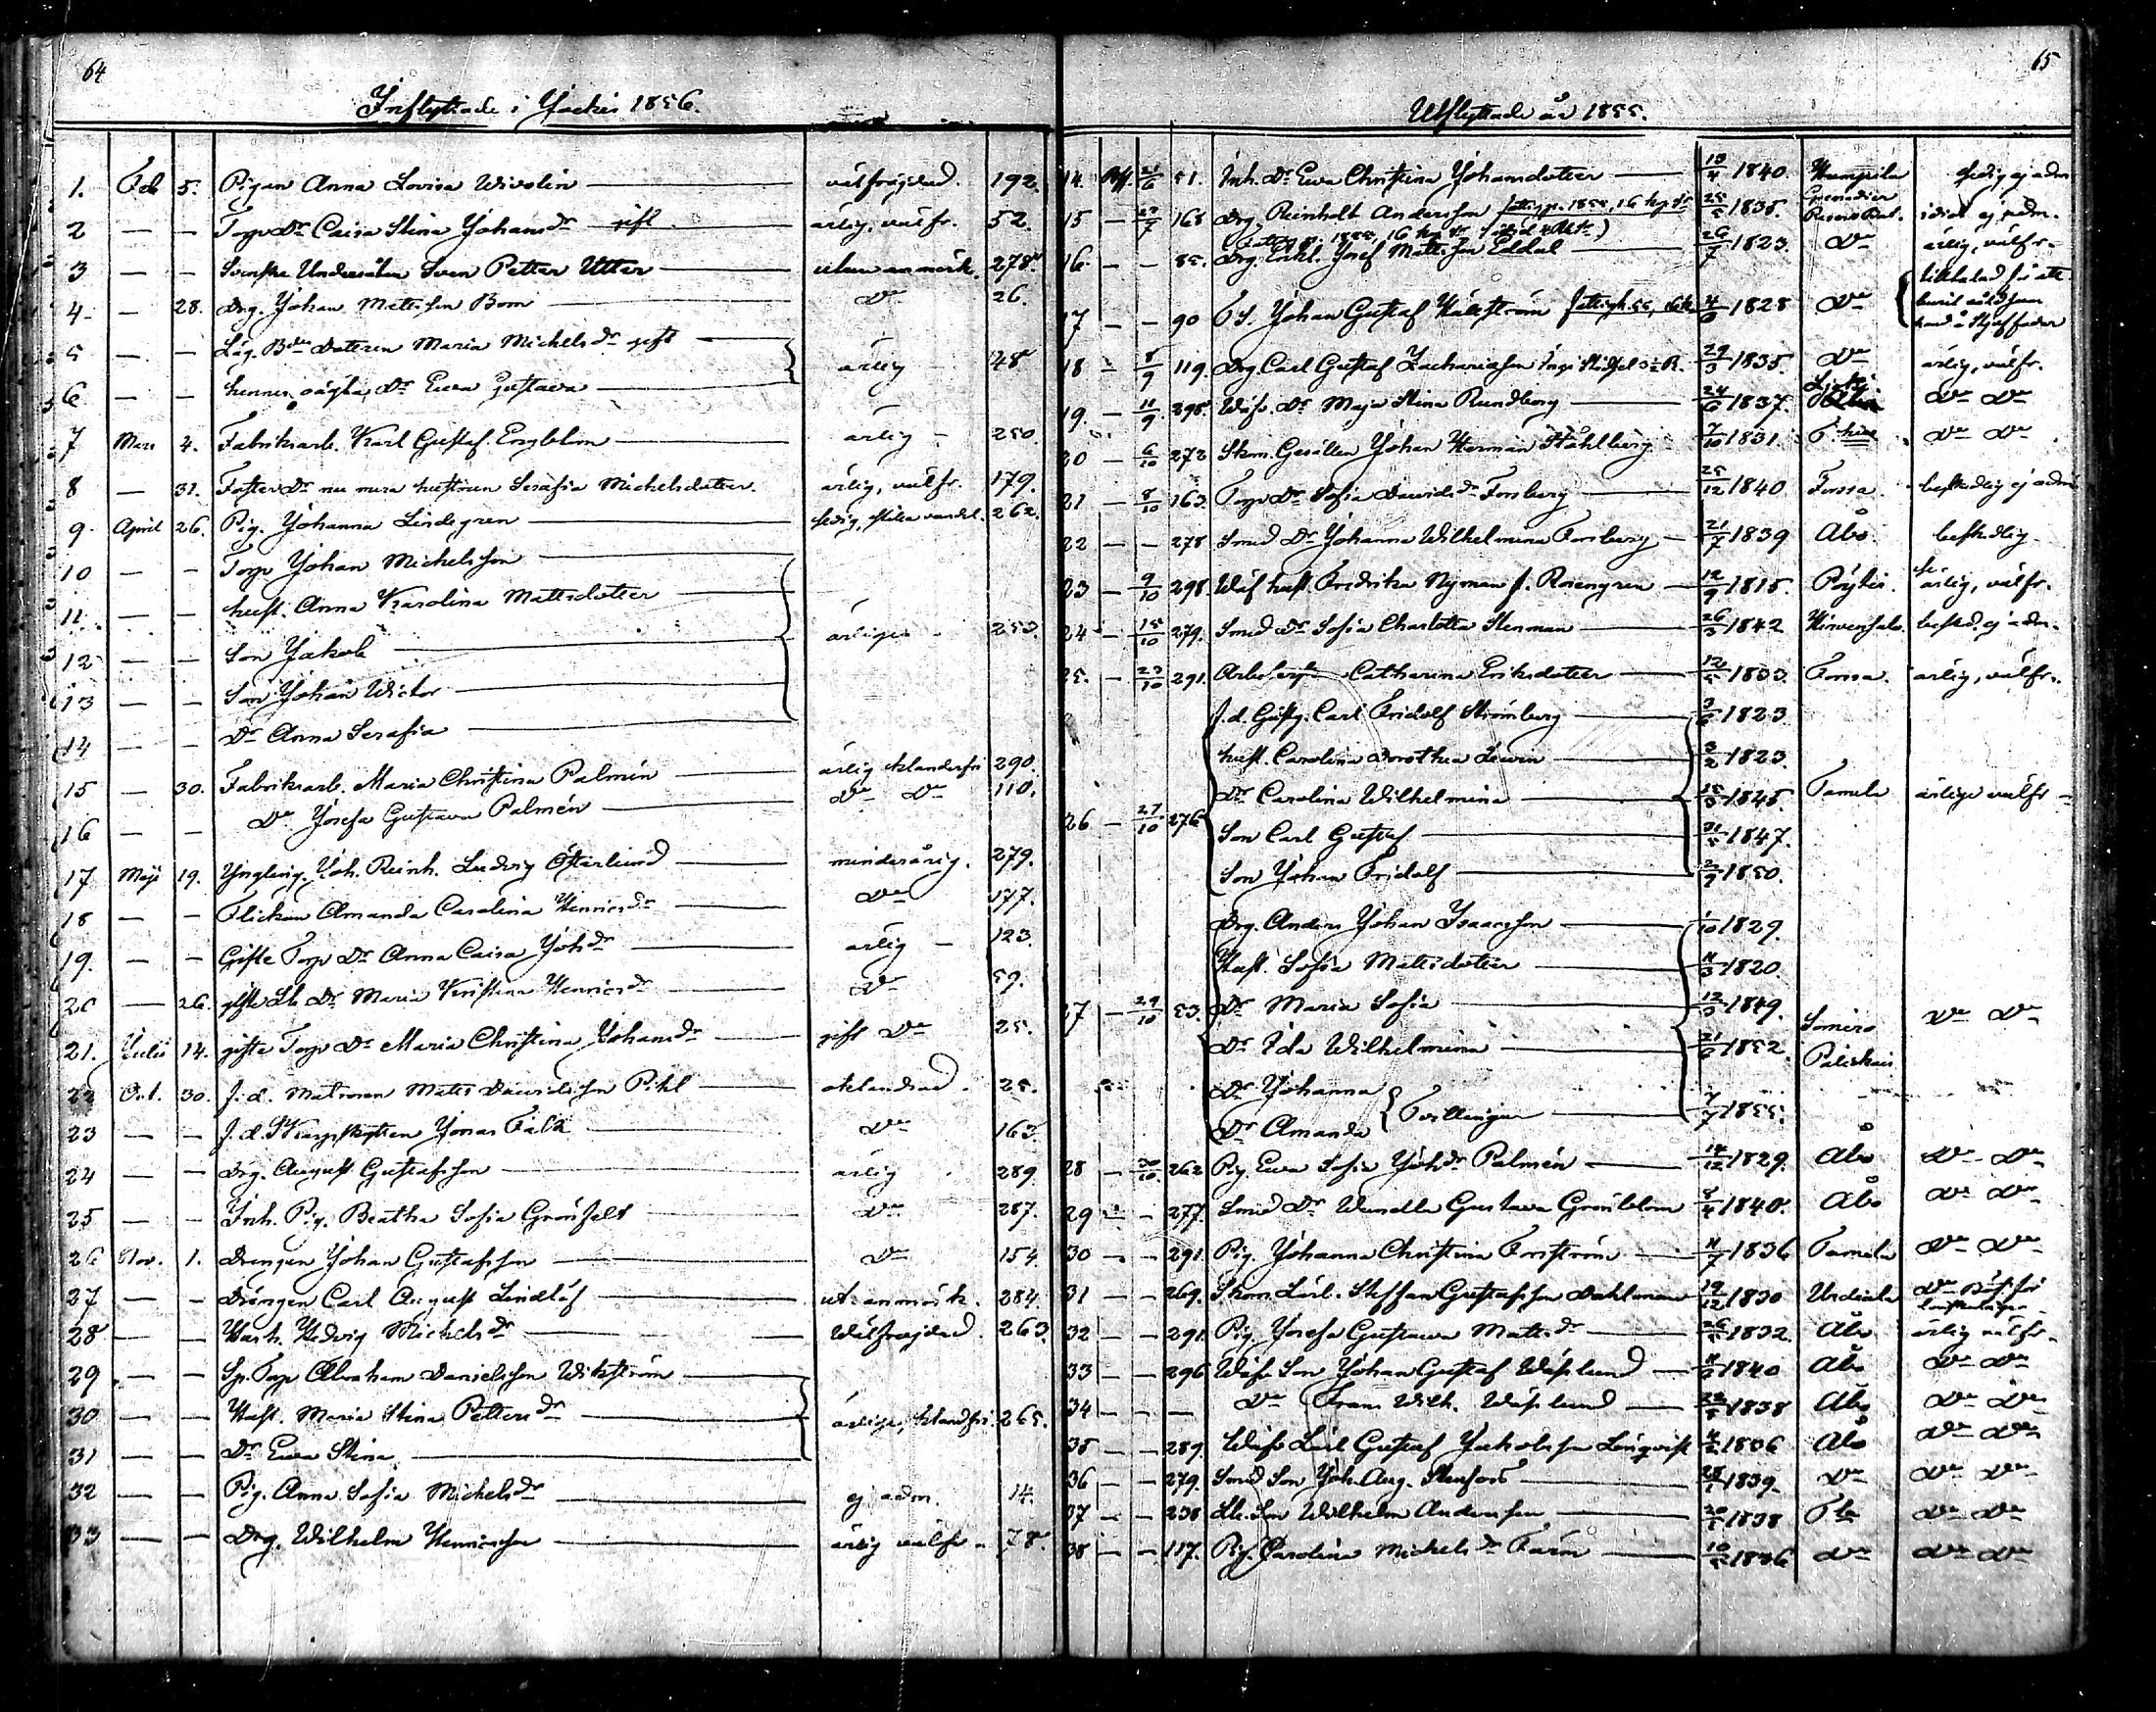 64
Inflyttade i Jockis 1856.
1. Feb 5. Pigan Anna Lovisa Wivolin välfrejdad. 192.
2 — — Torp Dr Caisa Stina Johansdr gift ärlig, välfr. 52.
3 — — Svenske Undersåten Sven Petter Utter utan anmärk. 278.
4 — 28. Drg. Johan Mattsson Bom Do 26.
5 — — Dotteren Maria Michelsdr gift ärlig 48
6 — — hennes oägta Dr Eva Gustava
7 Mars 4. Fabriksarb. Karl Gustaf Engblom ärlig 250.
8 — 31. Foster Dr nu mera hustrun Serafia Michelsdotter. ärlig, välfr. 179.
9 April 26. Pig. Johanna Lindegren sedig, stilla vandel. 262.
10 — — Torp Johan Michelsson
11 — — hust. Anna Karolina Mattsdotter
12 — — Son Jakob ärliga 253.
13 — — Son Johan Wictor
14 — — Dr Anna Serafia
15 — 30. Fabriksarb. Maria Christina Palmén ärlig klanderfri 290.
16 — — Do Josefa Gustava Palmén Do Do 110.
17 Maji 19. Yngling. Joh. Reinh. Ludvig Österlund minderårig. 279.
18 — — Flickan Amanda Carolina Henricsdr Do 177.
19. — — Gifte Torp Dr Anna Caisa Johdr ärlig 123.
20 — 26. gifte Sk Dr Maria Kristina Henricsdr Do 59.
21. Julii 14. gifte Torp Dr Maria Christina Johansdr gift Do 25.
22 Oct. 30. f.d. Matrosen Matts Davidsson Pihl oklandrad. 25.
23 — — f.d. Skarpskytten Jonas Falck Do 163.
24 — — Drg. August Gustafsson ärlig 289
25 — — Inh. Pig. Beatha Sofia Grönfelt Do 287.
26 Nov. 1. Drengen Johan Gustafsson Do 154.
27 — — Drängen Carl August Lindlöf ut. anmärk. 284.
28 — — Hedvig Michelsdr Wälfrejdad. 263.
29 — — Sp. Torp Abraham Danielsson Wikström
30 — — Hust. Maria Stina Pettersdr ärliga, klandfri 265.
31 — — Dr Eva Stina
32 — — Pig. Anna Sofia Michelsdr ej adm. 14.
33 — — Drg. Wilhelm Henricsson ärlig välfr. 78.
65
Utflyttade år 1855.
14. 6 51. Inh. Dr Eva Christina Johansdotter 13/4 1840. Humpila sedig ej adm
15 — 27/7 168 Drg. Reinholt Andersson 25/5 1835. Grenadier idiot ej adm.
16. — — 85. Drg. Enkl. Josef Mattsson Eldal 26/7 1823. Do ärlig, välfr.
17 — — 90 Johan Gustaf Hällström 1828 Do
18 — 8/9 119. Drg. Carl Gustaf Zachariasson 29/3 1835. Do ärlig, välfr.
19. — 11/9 298. Wäfv. Dr Maja Stina Rundberg 24/6 1837. Do Do
20 — 6/10 272 Skom. Gesällen Johan Herman Ståhlberg 7/10 1831. Do Do
21 — 8/10 163. Torp Dr Sofia Davidsdr Forsberg 25/12 1840 Forssa. beskedlig ej adm
22 — — 278 Smed Dr Johanna Wilhelmina Forsberg 21/7 1839 Åbo beskedlig.
23 — 9/10 298. Wäf hust. Fredrika Nyman f. Rosengren 12/9 1815. Pöytis ärlig, välfr.
24 — 15/10 279. Smed Dr Sofia Charlotta Stenman 26/3 1842 Hirvensalo. besked. ej adm.
25. — 23/10 291. Catharina Eriksdotter 12/5 1833. Forssa. ärlig, välfr.
f.d. Gästg. Carl Fridolf Strömberg 1823.
hust. Carolina Dorothea Lewin 3/2 1823.
Dr Carolina Wilhelmina 1845. Tamela ärliga välfr
26 — 27/10 276 Son Carl Gustaf 31/5 1847.
Son Johan Fridolf 2/9 1850.
Drg. Anders Johan Isaacsson 1/10 1829.
Hust. Sofia Mattsdotter 11/3 1820.
27 — 29/10 53. Dr Maria Sofia 12/3 1849. Somero Do Do
Dr Ida Wilhelmina 21/6 1852. Palikais
Dr Johanna
Dr Amanda Tvillingar 7/7 1855.
28 — 30/10 262 Pig. Eva Sofia Johdr Palmén 14/12 1829. Åbo Do Do
29 — — 277. Smed Dr Wendla Gustava Grönblom 8/4 1840. Åbo Do Do
30 — — 291. Pig. Johanna Christina Forström 11/7 1836 Tamela Do Do
31 — — 269. Skom. Lärl. Steffan Gustafsson Dahlman 19/12 1830 Urdiala Do
32 — — 291. Pig. Josefa Gustava Mattsdr 1832 Åbo ärlig välfr.
33 — — 296 Wäfv. Son Johan Gustaf Wäflund 1840 Åbo Do Do
34 — — — Do Frans Wilh. Wäflund 1838 Åbo Do Do
35 — — 289. Wäfv Lärl Gustaf Jakobsson Lönqvist 1836 Åbo Do Do
36 — — 279. Smed Son Joh. Aug. Stenfors 1839. Do Do Do
37 — — 238 Son Wilhelm Andersson 1838 Do Do
38 — — 117. Pig. Carolina Michelsdr Farm 1836 Do Do Do